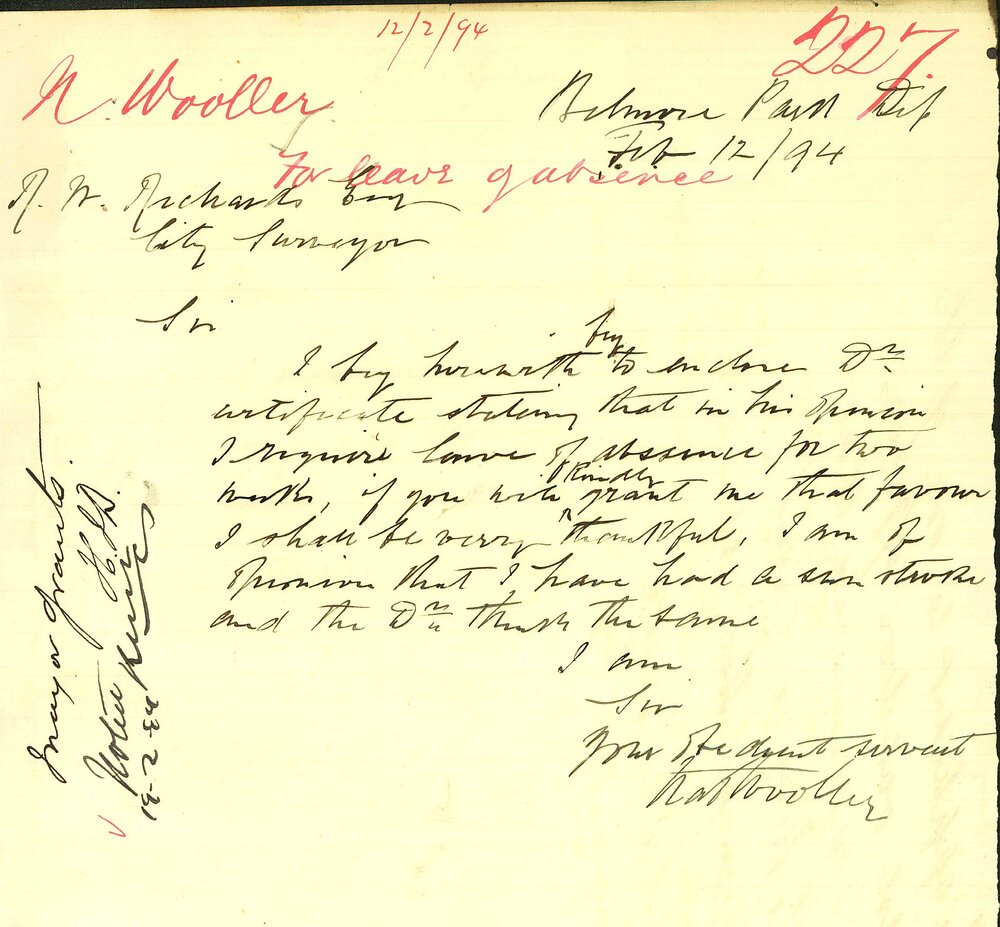 12/2/94
227.
N. Wooller
Belmore Park
Feb 12/94
For leave of absence
R. W. Richards Esq
City Surveyor
Sir
beg
I beg herewith to enclose Drs
certificate stateing that in his opinion
I require leave of absence for two
Kindly
weeks, if you will grant me that favour
I shall be very thankful, I am of
opinion that I have had a sun stroke
and the Dr think the same
I am
Sir
your obedyent servent
Nat Wooller
Mayor grants.
H.D.
Noted
19-2-94